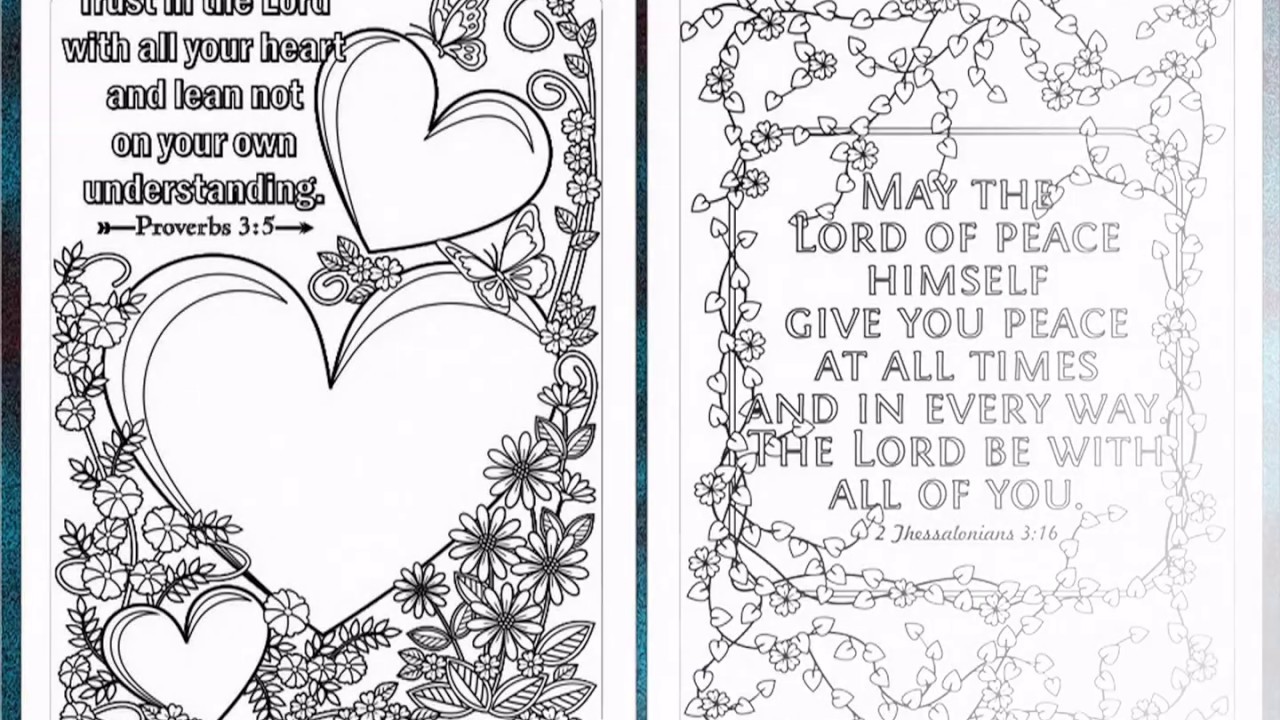 Trust in the Lord
with all your heart
and lean not
on your own
understanding.
Proverbs 3:5
MAY THE
LORD OF PEACE
HIMSELF
GIVE YOU PEACE
AT ALL TIMES
AND IN EVERY WAY.
THE LORD BE WITH
ALL OF YOU.
2 Thessalonians 3:16